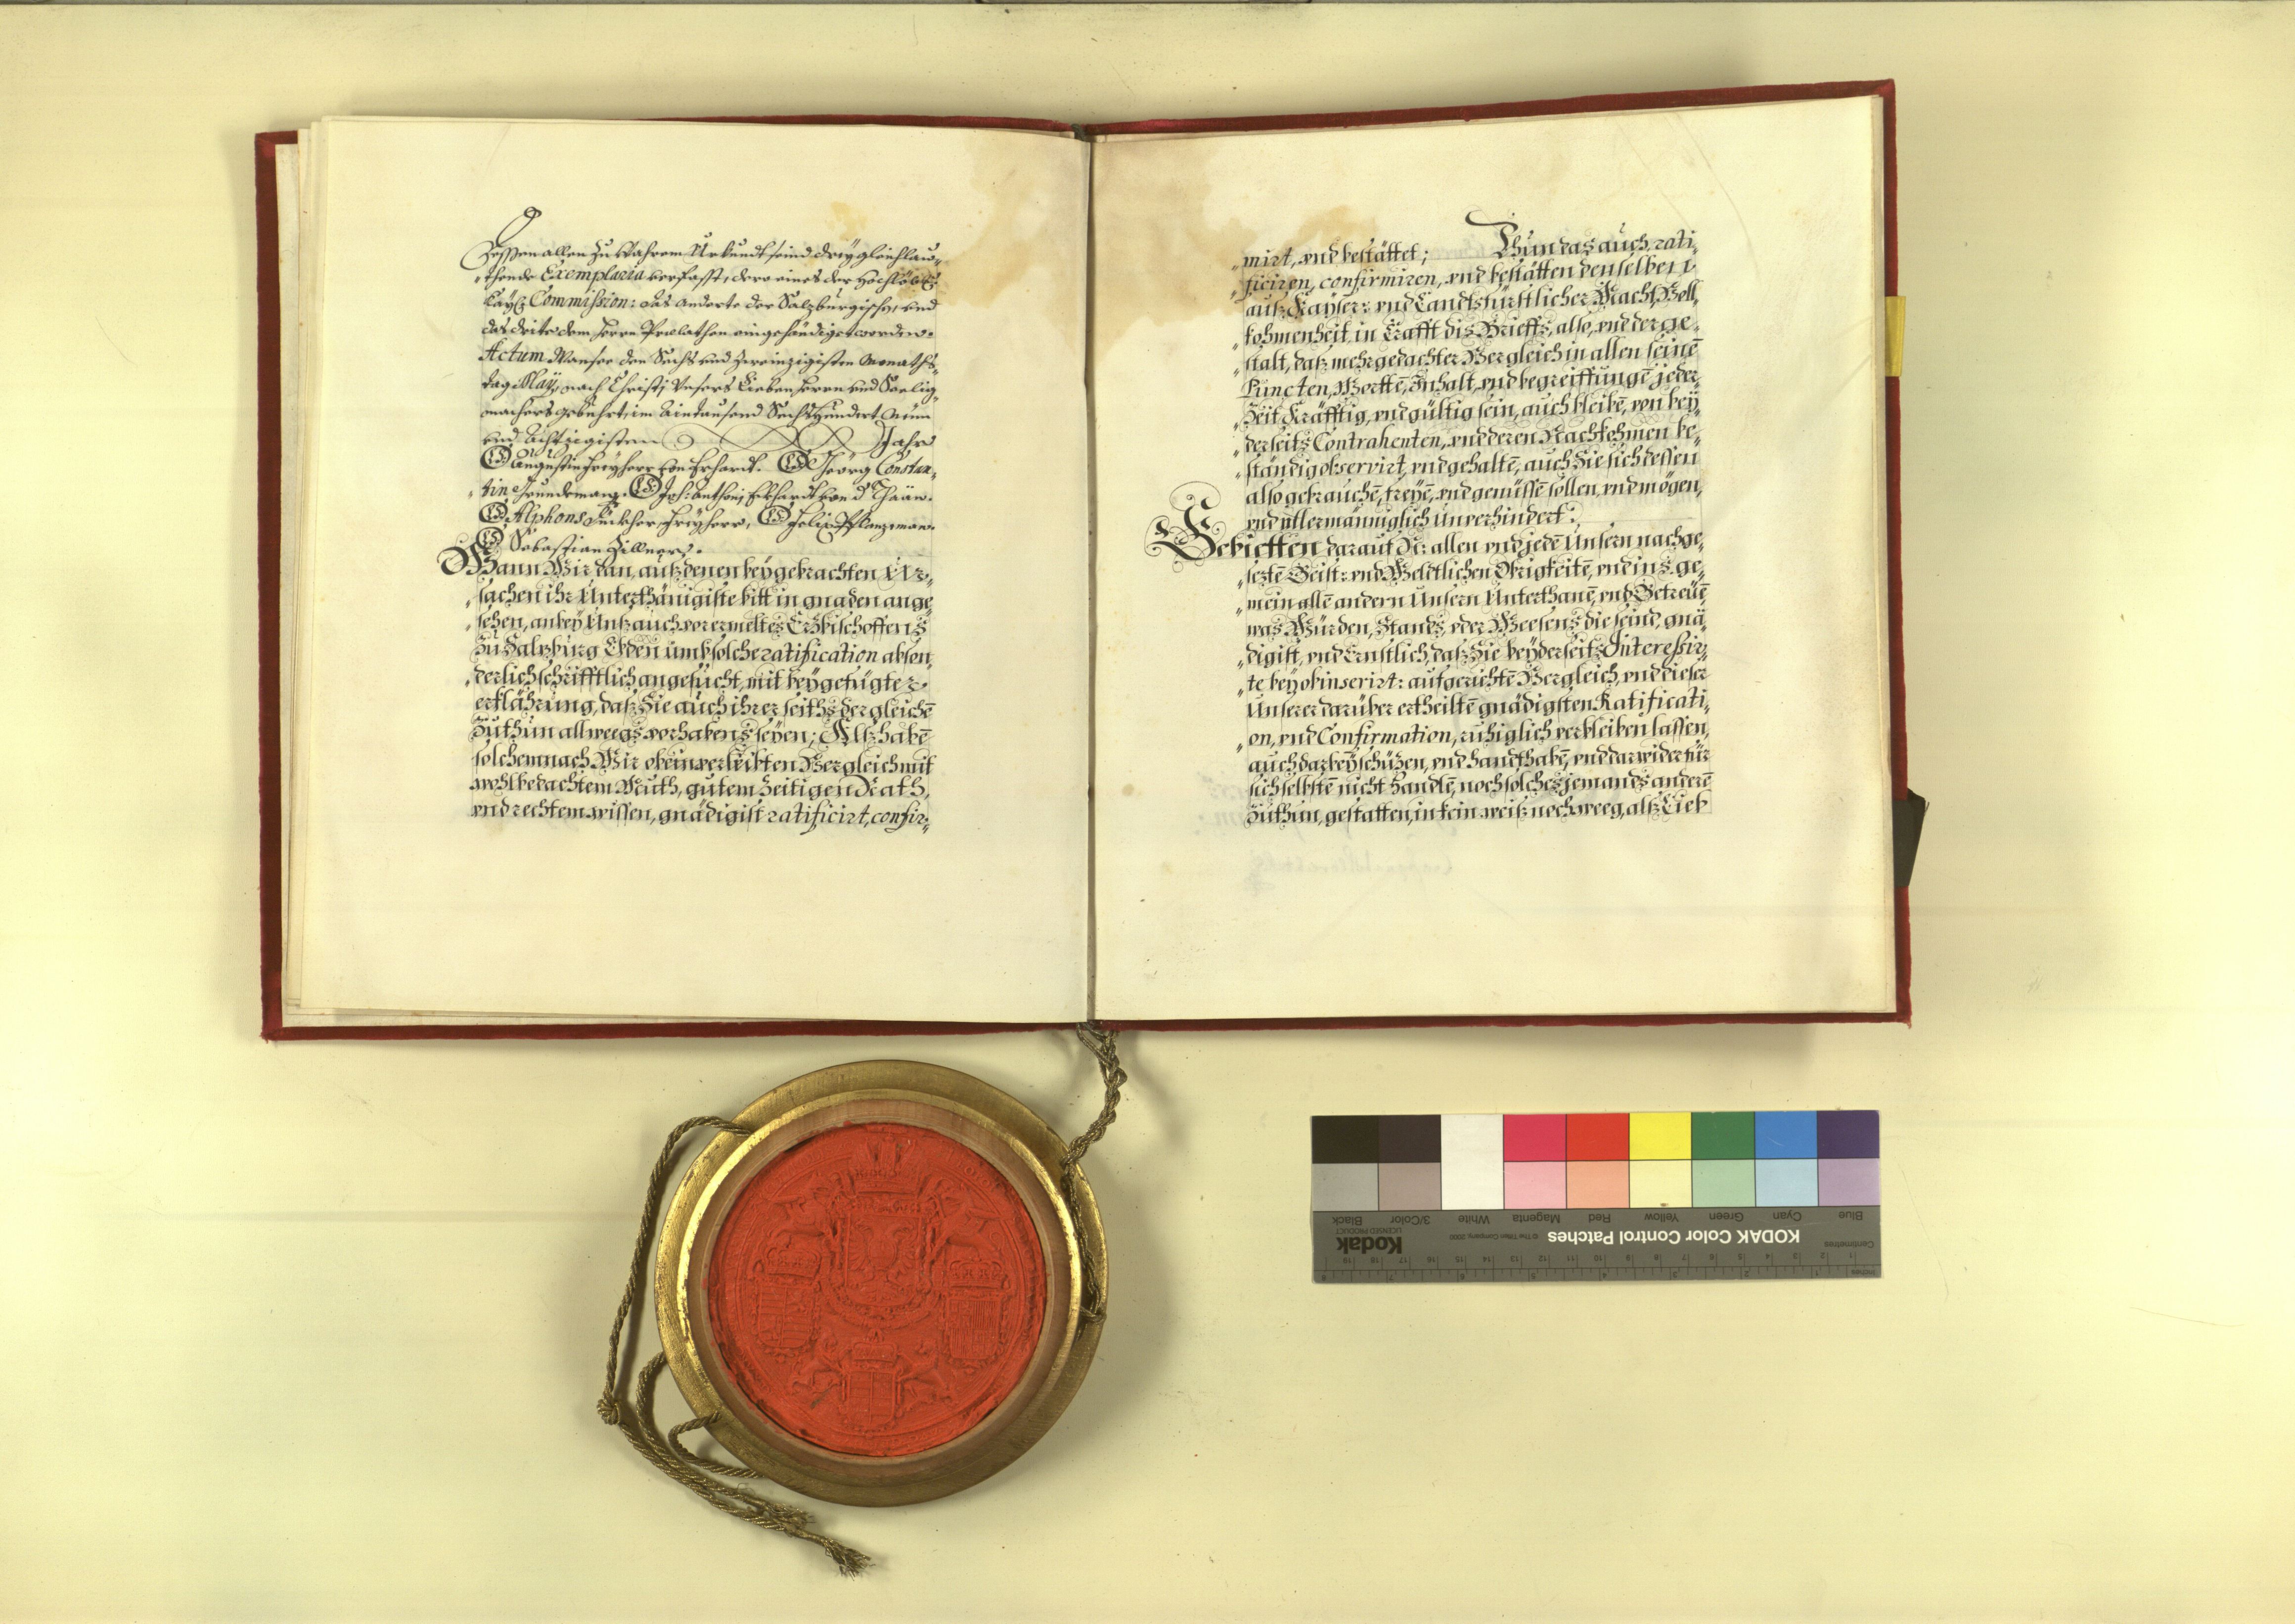 Dessen allen zu Wahrem Urkundt seind dreÿ gleichlau-
thende Exemplaria verfasst, dero eines der Hochlöbl:
Kaÿs: Commission: das anderte der Salzburgischen, und
das drite dem Herrn Prælathen eingehändiget worden.
Actum Mansee den Sechs und zweinzigisten Monaths-
tag Maÿ, nach Christi Unsers Lieben Herrn und Seelig-
machers gebuhrt, im Aintausend Sechshundert Neün
und Achtzigisten Jahr
LS Augustin Freÿherr von Erhardt. LS Geörg Constan-
tin Grundeman. LS Joh: Anthoni Eckhardt von d Thaan.
LS Alphons Freÿherr, LS Felix Pflanzman.
LS Sebastian Zillner.
Wann Wir dan, auß denen beÿgebrachten Ur-
sachen ihr Unterthänigiste bitt in gnaden ange-
sehen, anbeÿ Unß auch vor ermeltes Erzbischoffens
zu Salzburg Lbden umb solche ratification abson-
derlich schrifftlich angesucht, mit beÿgefügter
erklährung, daß Sie auch ihrer seiths dergleichē
zuthun allweegs vorhabens seÿen; Alß habē
solchemnach Wir obeinverleibten Vergleich mit
wohlbedachtem Muth, gutem zeitigen Rath,
vnd rechtem wissen, gnädigist ratificirt, confir-
mirt, vnd bestättet; Thun das auch, rati-
ficiren, confirmiren, vnd bestätten denselben
auß Kaÿser: vnd Landtsfürstlicher Macht, Voll-
kohmenheit, in Krafft dis Brieffs, also, vnd derge-
stalt, daß mehrgedachter Vergleich in allen seinē
Puncten, Wortē, Inhalt, vnd begreiffungē jeder-
zeit Kräfftig, vnd gültig sein, auch bleibē, von beÿ-
derseits Contrahenten, vnd deren Nachkohmen be-
ständig observirt, vnd gehaltē, auch Sie sich dessen
also gebrauchē, freÿē, vnd genüssē sollen, vnd mögen,
vnd allermänniglich unverhindert:
Gebietten darauf allen vnd jedē Unsern nachge-
seztē Geist: vnd Weltlichen Obrigkeitē, vnd ins ge-
mein allē andern Unsern Unterthanē, vnd Getreüē,
was Würden, Stands, oder Weesens die seind, gnä-
digist, vnd Ernstlich, daß Sie beÿderseits Interessir-
te beÿ obinserirt: aufgerichtē Vergleich, vnd dieser
Unserer darüber ertheiltē gnädigsten Ratificati-
on, vnd Confirmation, ruhiglich verbleiben lassen,
auch darbeÿ schüzen, vnd handthabē, vnd darwider für
sich selbstē nicht handlē, noch solches jemands anderē
zuthun, gestatten, in kein weiß noch weeg, alß Lieb
KODAK Color Control Patches
Kodak
LICENSED PRODUCT
© The Tiffen Company, 2000
Blue Cyan Green Yellow Red Magenta White 3/Color Black
Centimetres
Inches